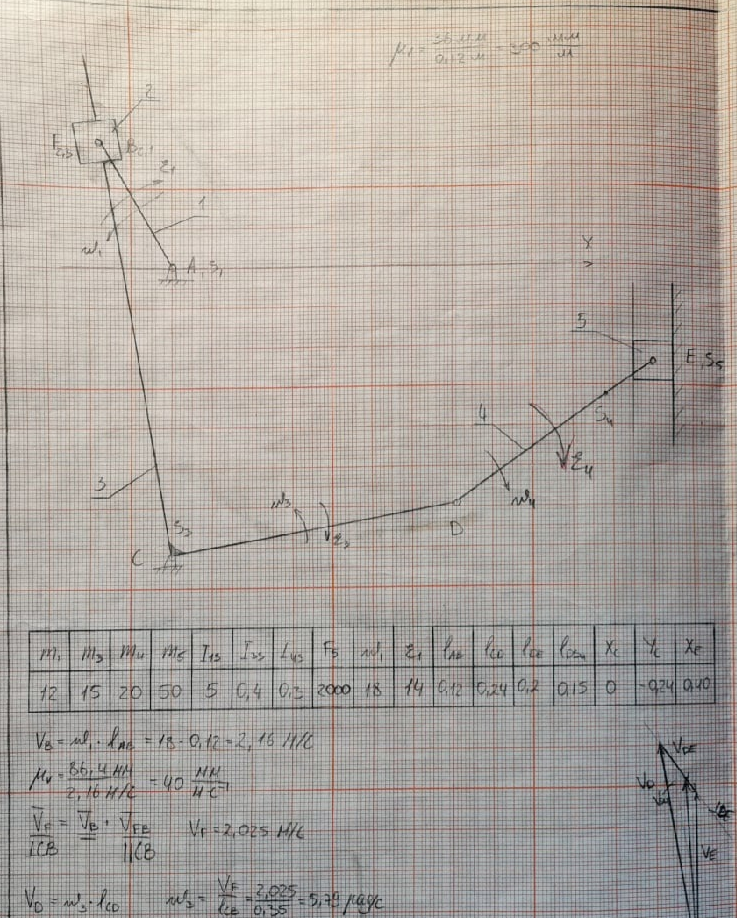 μ₁ = 36 мм / 0,12 м = 300 мм/м
2
1
ω₁
ε₁
A, S₁
Y
5
E, S₅
4
S₄
ε₄
ω₄
3
S₃
ω₃
ε₃
D
C
m₁ m₃ m₄ m₅ I₁s I₃s I₄s F₅ ω₁ ε₁ l_AB l_CD l_DE l_DS₄ X_C Y_C X_E
12 15 20 50 5 0,4 0,3 2000 18 14 0,12 0,24 0,2 0,15 0 -0,24 0,40
V_B = ω₁ · l_AB = 18 · 0,12 = 2,16 м/с
μ_v = 86,4 мм / 2,16 м/с = 40 мм/мс⁻¹
V̄_F = V̄_B + V̄_FB V_F = 2,025 м/с
⊥CB ||CB
V_D = ω₃ · l_CD ω₃ = V_F / l_CB = 2,025 / 0,35 = 5,79 рад/с
V_DE
V_D
V_E